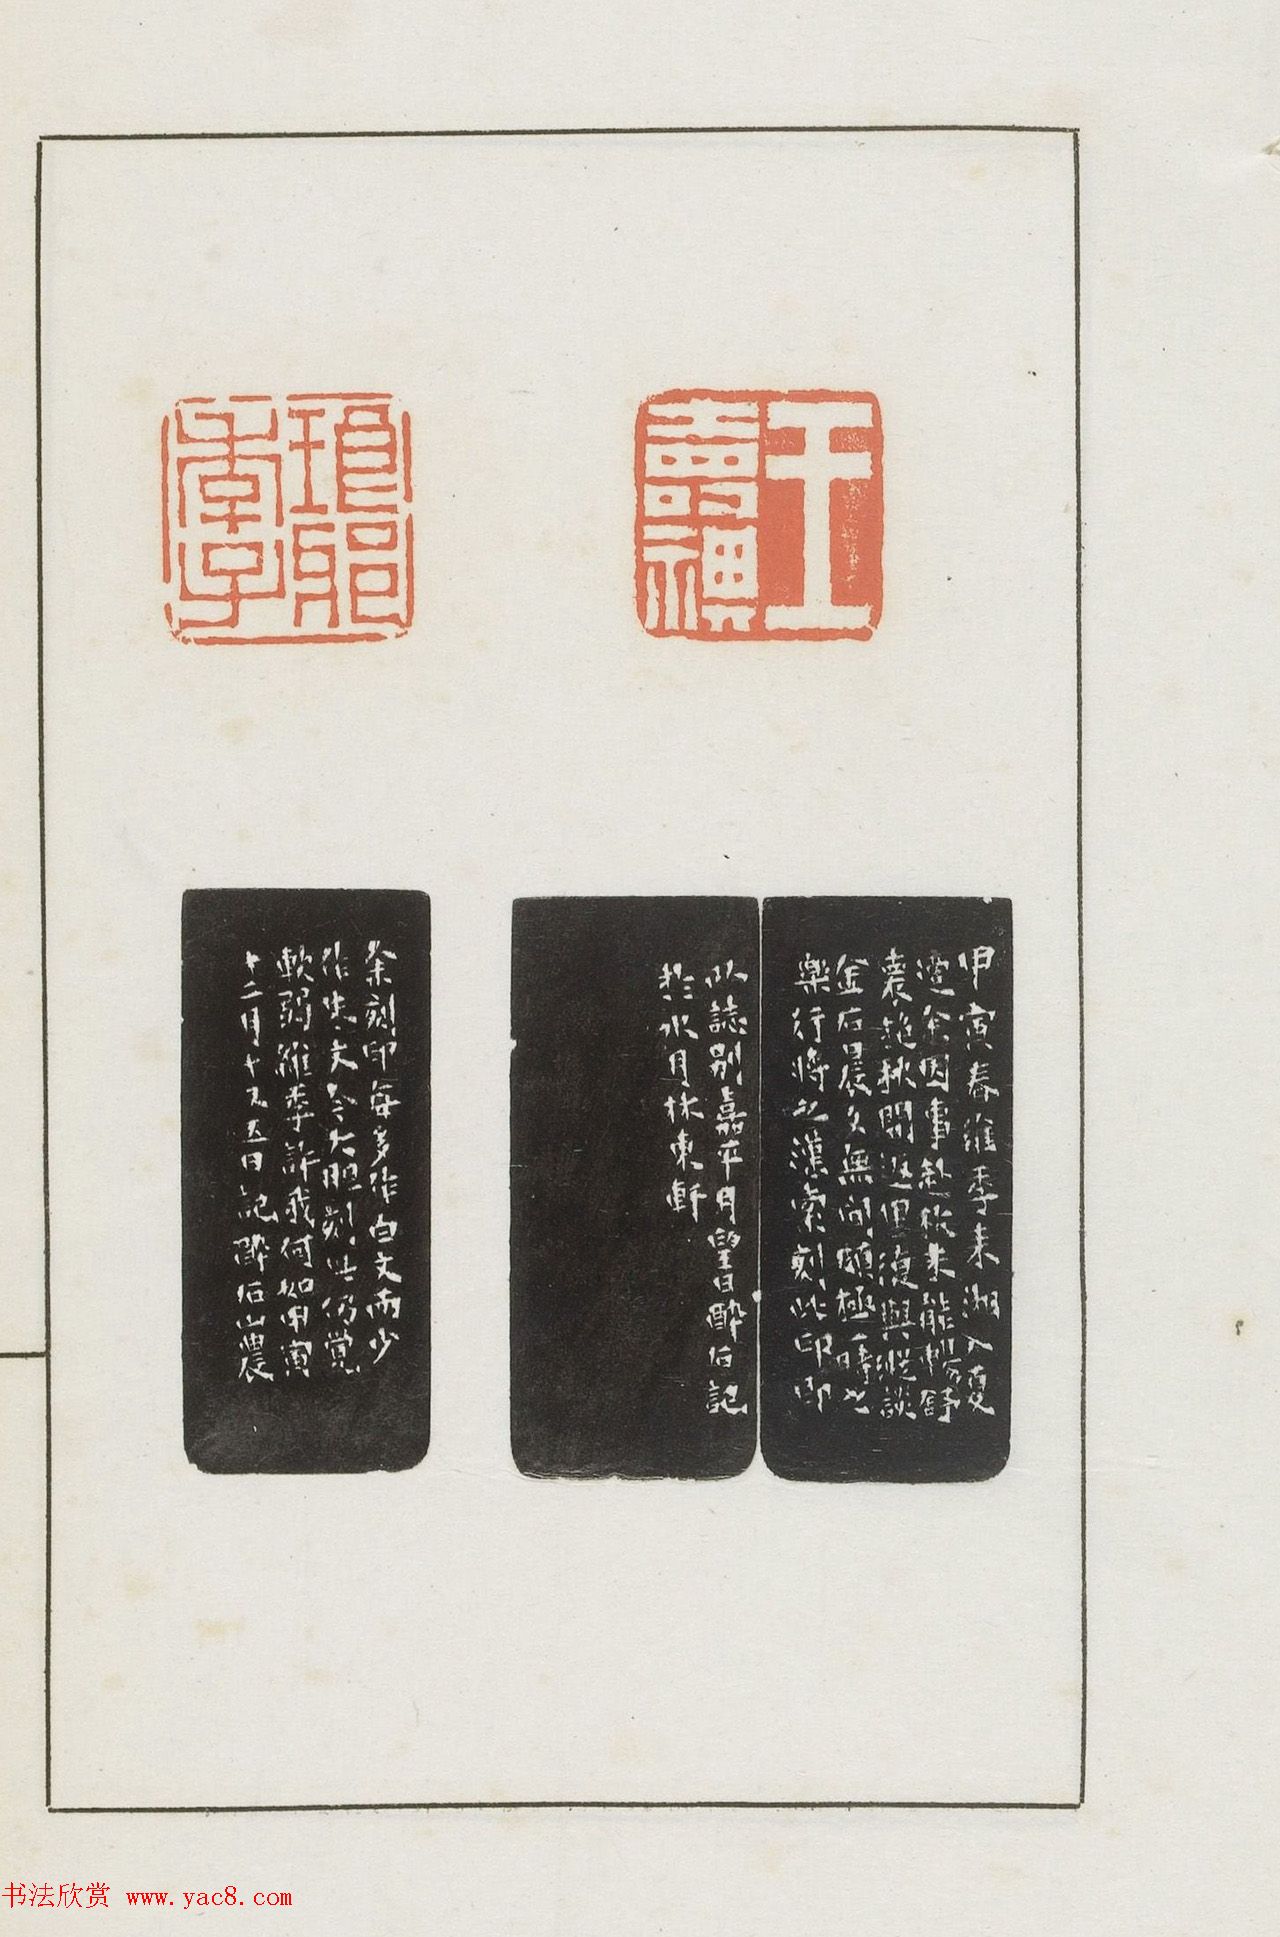 王
壽
琅邪
季子
甲寅春維季來湘入夏
余因事赴未能暢舒
秋間返里復與縱談
金石晨夕無間頗極一時之
樂行將之漢索刻此印即
以誌別嘉平月望日醉石記
於水月林東軒
余刻印每多作白文而少
作朱文今大胆刻此仍覺
軟弱維季許我何如甲寅
十二月十又五日記醉石山農
书法欣赏 www.yac8.com